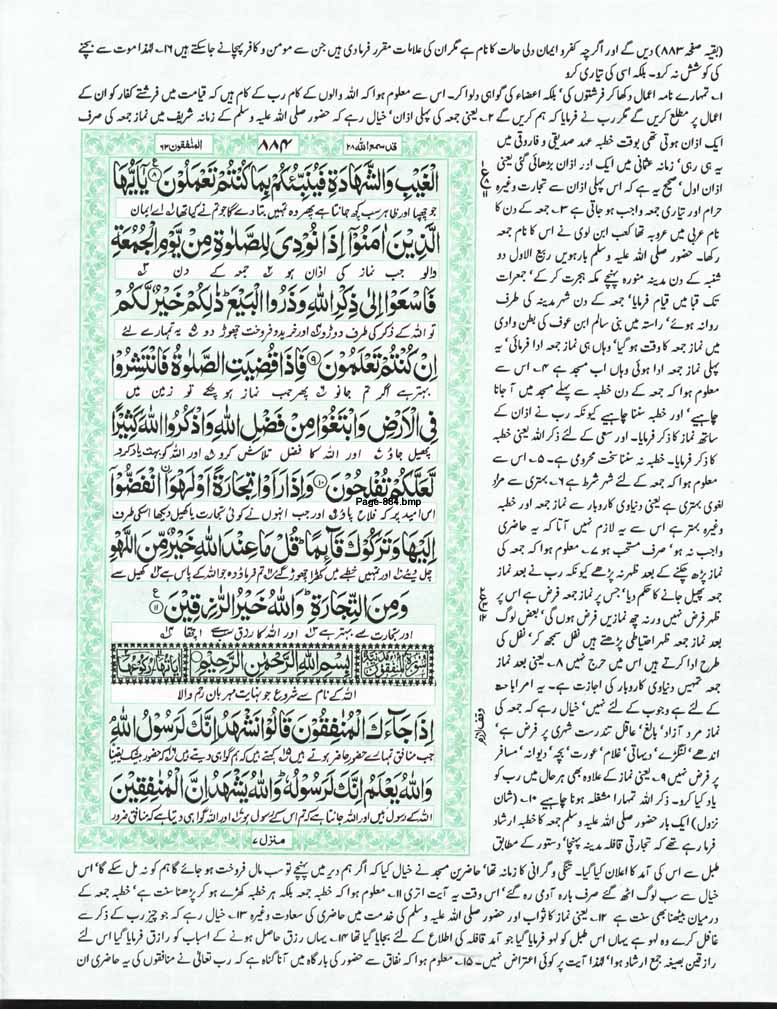 (بقیہ صفحہ ۸۸۳) دیں گے اور اگرچہ کفر و ایمان دلی حالت کا نام ہے مگر ان کی علامات مقرر فرما دی ہیں جن سے مومن و کافر پہچانے جا سکتے ہیں ۱۶۔ لہٰذا موت سے بچنے
کی کوشش نہ کرو۔ بلکہ اسی کی تیاری کرو
۱۔ تمہارے نامہ اعمال دکھا کر فرشتوں کی' بلکہ اعضاء کی گواہی دلوا کر۔ اس سے معلوم ہوا کہ اللہ والوں کے کام رب کے کام ہیں کہ قیامت میں فرشتے کفار کو ان کے
اعمال پر مطلع کریں گے مگر رب نے فرمایا کہ ہم کریں گے ۲۔ یعنی جمعہ کی پہلی اذان' خیال رہے کہ حضور صلی اللہ علیہ وسلم کے زمانہ شریف میں نماز جمعہ کی صرف
قد سمع اللہ ۲۸
۸۸۴
المنٰفقون ۶۳
الْغَيْبِ وَالشَّهَادَةِ فَيُنَبِّئُكُمْ بِمَا كُنْتُمْ تَعْمَلُوْنَ ۸ يٰٓاَيُّهَا
جو چھپا اور ظاہر سب کچھ جانتا ہے پھر وہ تمہیں بتا دے گا جو تم نے کیا تھا اے ایمان
الَّذِيْنَ اٰمَنُوْٓا اِذَا نُوْدِيَ لِلصَّلٰوةِ مِنْ يَّوْمِ الْجُمُعَةِ
والو جب نماز کی اذان ہو جمعہ کے دن
فَاسْعَوْا اِلٰى ذِكْرِ اللّٰهِ وَذَرُوا الْبَيْعَ ذٰلِكُمْ خَيْرٌ لَّكُمْ
تو اللہ کے ذکر کی طرف دوڑو اور خرید و فروخت چھوڑ دو یہ تمہارے لئے
اِنْ كُنْتُمْ تَعْلَمُوْنَ ۹ فَاِذَا قُضِيَتِ الصَّلٰوةُ فَانْتَشِرُوْا
بہتر ہے اگر تم جانو پھر جب نماز ہو چکے تو زمین میں
فِي الْاَرْضِ وَابْتَغُوْا مِنْ فَضْلِ اللّٰهِ وَاذْكُرُوا اللّٰهَ كَثِيْرًا
پھیل جاؤ اور اللہ کا فضل تلاش کرو اور اللہ کو بہت یاد کرو
لَّعَلَّكُمْ تُفْلِحُوْنَ ۱۰ وَاِذَا رَاَوْا تِجَارَةً اَوْ لَهْوَا انْفَضُّوْٓا
Page-884.bmp
اس امید پر کہ فلاح پاؤ اور جب انہوں نے کوئی تجارت یا کھیل دیکھا اسکی طرف
اِلَيْهَا وَتَرَكُوْكَ قَآئِمًا قُلْ مَا عِنْدَ اللّٰهِ خَيْرٌ مِّنَ اللَّهْوِ
چل دیئے اور تمہیں خطبے میں کھڑا چھوڑ گئے تم فرماؤ وہ جو اللہ کے پاس ہے کھیل سے
وَمِنَ التِّجَارَةِ وَاللّٰهُ خَيْرُ الرّٰزِقِيْنَ ۱۱
اور تجارت سے بہتر ہے اور اللہ کا رزق سب سے اچھا
بِسْمِ اللّٰهِ الرَّحْمٰنِ الرَّحِيْمِ
اللہ کے نام سے شروع جو نہایت مہربان رحم والا
اِذَا جَآءَكَ الْمُنٰفِقُوْنَ قَالُوْا نَشْهَدُ اِنَّكَ لَرَسُوْلُ اللّٰهِ
جب منافق تمہارے حضور حاضر ہوتے ہیں کہتے ہیں کہ ہم گواہی دیتے ہیں کہ حضور بیشک یقیناً
وَاللّٰهُ يَعْلَمُ اِنَّكَ لَرَسُوْلُهٗ وَاللّٰهُ يَشْهَدُ اِنَّ الْمُنٰفِقِيْنَ
اللہ کے رسول ہیں اور اللہ جانتا ہے کہ تم اس کے رسول ہو اور اللہ گواہی دیتا ہے کہ منافق ضرور
منزل ۷
وقف لازم
ایک اذان ہوتی تھی بوقت خطبہ عہد صدیقی و فاروقی میں
یہ ہی رہی' زمانہ عثمانی میں ایک اور اذان بڑھائی گئی یعنی
اذان اول' صحیح یہ ہے کہ اس پہلی اذان سے تجارت وغیرہ
حرام اور تیاری جمعہ واجب ہو جاتی ہے ۳۔ جمعہ کے دن کا
نام عربی میں عروبہ تھا کعب ابن لوی نے اس کا نام جمعہ
رکھا۔ حضور صلی اللہ علیہ وسلم بارہویں ربیع الاول دو
شنبہ کے دن مدینہ منورہ پہنچے مکہ ہجرت کر کے' جمعرات
تک قبا میں قیام فرمایا' جمعہ کے دن شہر مدینہ کی طرف
روانہ ہوئے' راستہ میں بنی سالم ابن عوف کی بطن وادی
میں نماز جمعہ کا وقت ہو گیا' وہاں ہی نماز جمعہ ادا فرمائی' یہ
پہلی نماز جمعہ ادا ہوئی وہاں اب مسجد ہے ۴۔ اس سے
معلوم ہوا کہ جمعہ کے دن خطبہ سے پہلے مسجد میں آ جانا
چاہیے' اور خطبہ سننا چاہیے کیونکہ رب نے اذان کے
ساتھ نماز کا ذکر فرمایا۔ اور سعی کے لئے ذکر اللہ یعنی خطبہ
کا ذکر فرمایا۔ خطبہ نہ سننا سخت محرومی ہے۔ ۵۔ اس سے
معلوم ہوا کہ جمعہ کے لئے شہر شرط ہے ۶۔ بہتری سے مراد
لغوی بہتری ہے یعنی دنیاوی کاروبار سے نماز جمعہ اور خطبہ
وغیرہ بہتر ہے اس سے یہ لازم نہیں آتا کہ یہ حاضری
واجب نہ ہو' صرف مستحب ہو ۷۔ معلوم ہوا کہ جمعہ کی
نماز پڑھ چکنے کے بعد ظہر نہ پڑھے کیونکہ رب نے بعد نماز
جمعہ پھیل جانے کا حکم دیا' جس پر نماز جمعہ فرض ہے اس پر
ظہر فرض نہیں ورنہ چھ نمازیں فرض ہوں گی' بعض لوگ
بعد نماز جمعہ ظہر احتیاطی پڑھتے ہیں نفل سمجھ کر' نفل کی
طرح ادا کرتے ہیں اس میں حرج نہیں ۸۔ یعنی بعد نماز
جمعہ تمہیں دنیاوی کاروبار کی اجازت ہے۔ یہ امر اباحت
کے لئے ہے وجوب کے لئے نہیں' خیال رہے کہ جمعہ کی
نماز مرد آزاد' بالغ' عاقل تندرست شہری پر فرض ہے'
اندھے' لنگڑے' دیہاتی' غلام' عورت' بچہ' دیوانہ' مسافر
پر فرض نہیں ۹۔ یعنی نماز کے علاوہ بھی ہر حال میں رب کو
یاد کیا کرو۔ ذکر اللہ تمہارا مشغلہ ہونا چاہیے ۱۰۔ (شان
نزول) ایک بار حضور صلی اللہ علیہ وسلم جمعہ کا خطبہ ارشاد
فرما رہے تھے کہ تجارتی قافلہ مدینہ پہنچا' دستور کے مطابق
طبل سے اس کی آمد کا اعلان کیا گیا۔ تنگی و گرانی کا زمانہ تھا' حاضرین مسجد نے خیال کیا کہ اگر ہم دیر میں پہنچے تو سب مال فروخت ہو جائے گا ہم کو نہ مل سکے گا' اس
خیال سے سب لوگ اٹھ گئے صرف بارہ آدمی رہ گئے' اس وقت یہ آیت اتری ۱۱۔ معلوم ہوا کہ خطبہ جمعہ بلکہ ہر خطبہ کھڑے ہو کر پڑھنا سنت ہے' خطبہ جمعہ کے
درمیان بیٹھنا بھی سنت ہے ۱۲۔ یعنی نماز کا ثواب اور حضور صلی اللہ علیہ وسلم کی خدمت میں حاضری کی سعادت وغیرہ ۱۳۔ خیال رہے کہ جو چیز رب کے ذکر سے
غافل کرے وہ لہو ہے یہاں اس طبل کو لہو فرمایا گیا جو آمد قافلہ کی اطلاع کے لئے بجایا گیا تھا ۱۴۔ یہاں رزق حاصل ہونے کے اسباب کو رازق فرمایا گیا اس لئے
رازقین بصیغہ جمع ارشاد ہوا' لہٰذا آیت پر کوئی اعتراض نہیں۔ ۱۵۔ معلوم ہوا کہ نفاق سے حضور کی بارگاہ میں آنا گناہ ہے کہ رب تعالیٰ نے منافقوں کی یہ حاضری ان